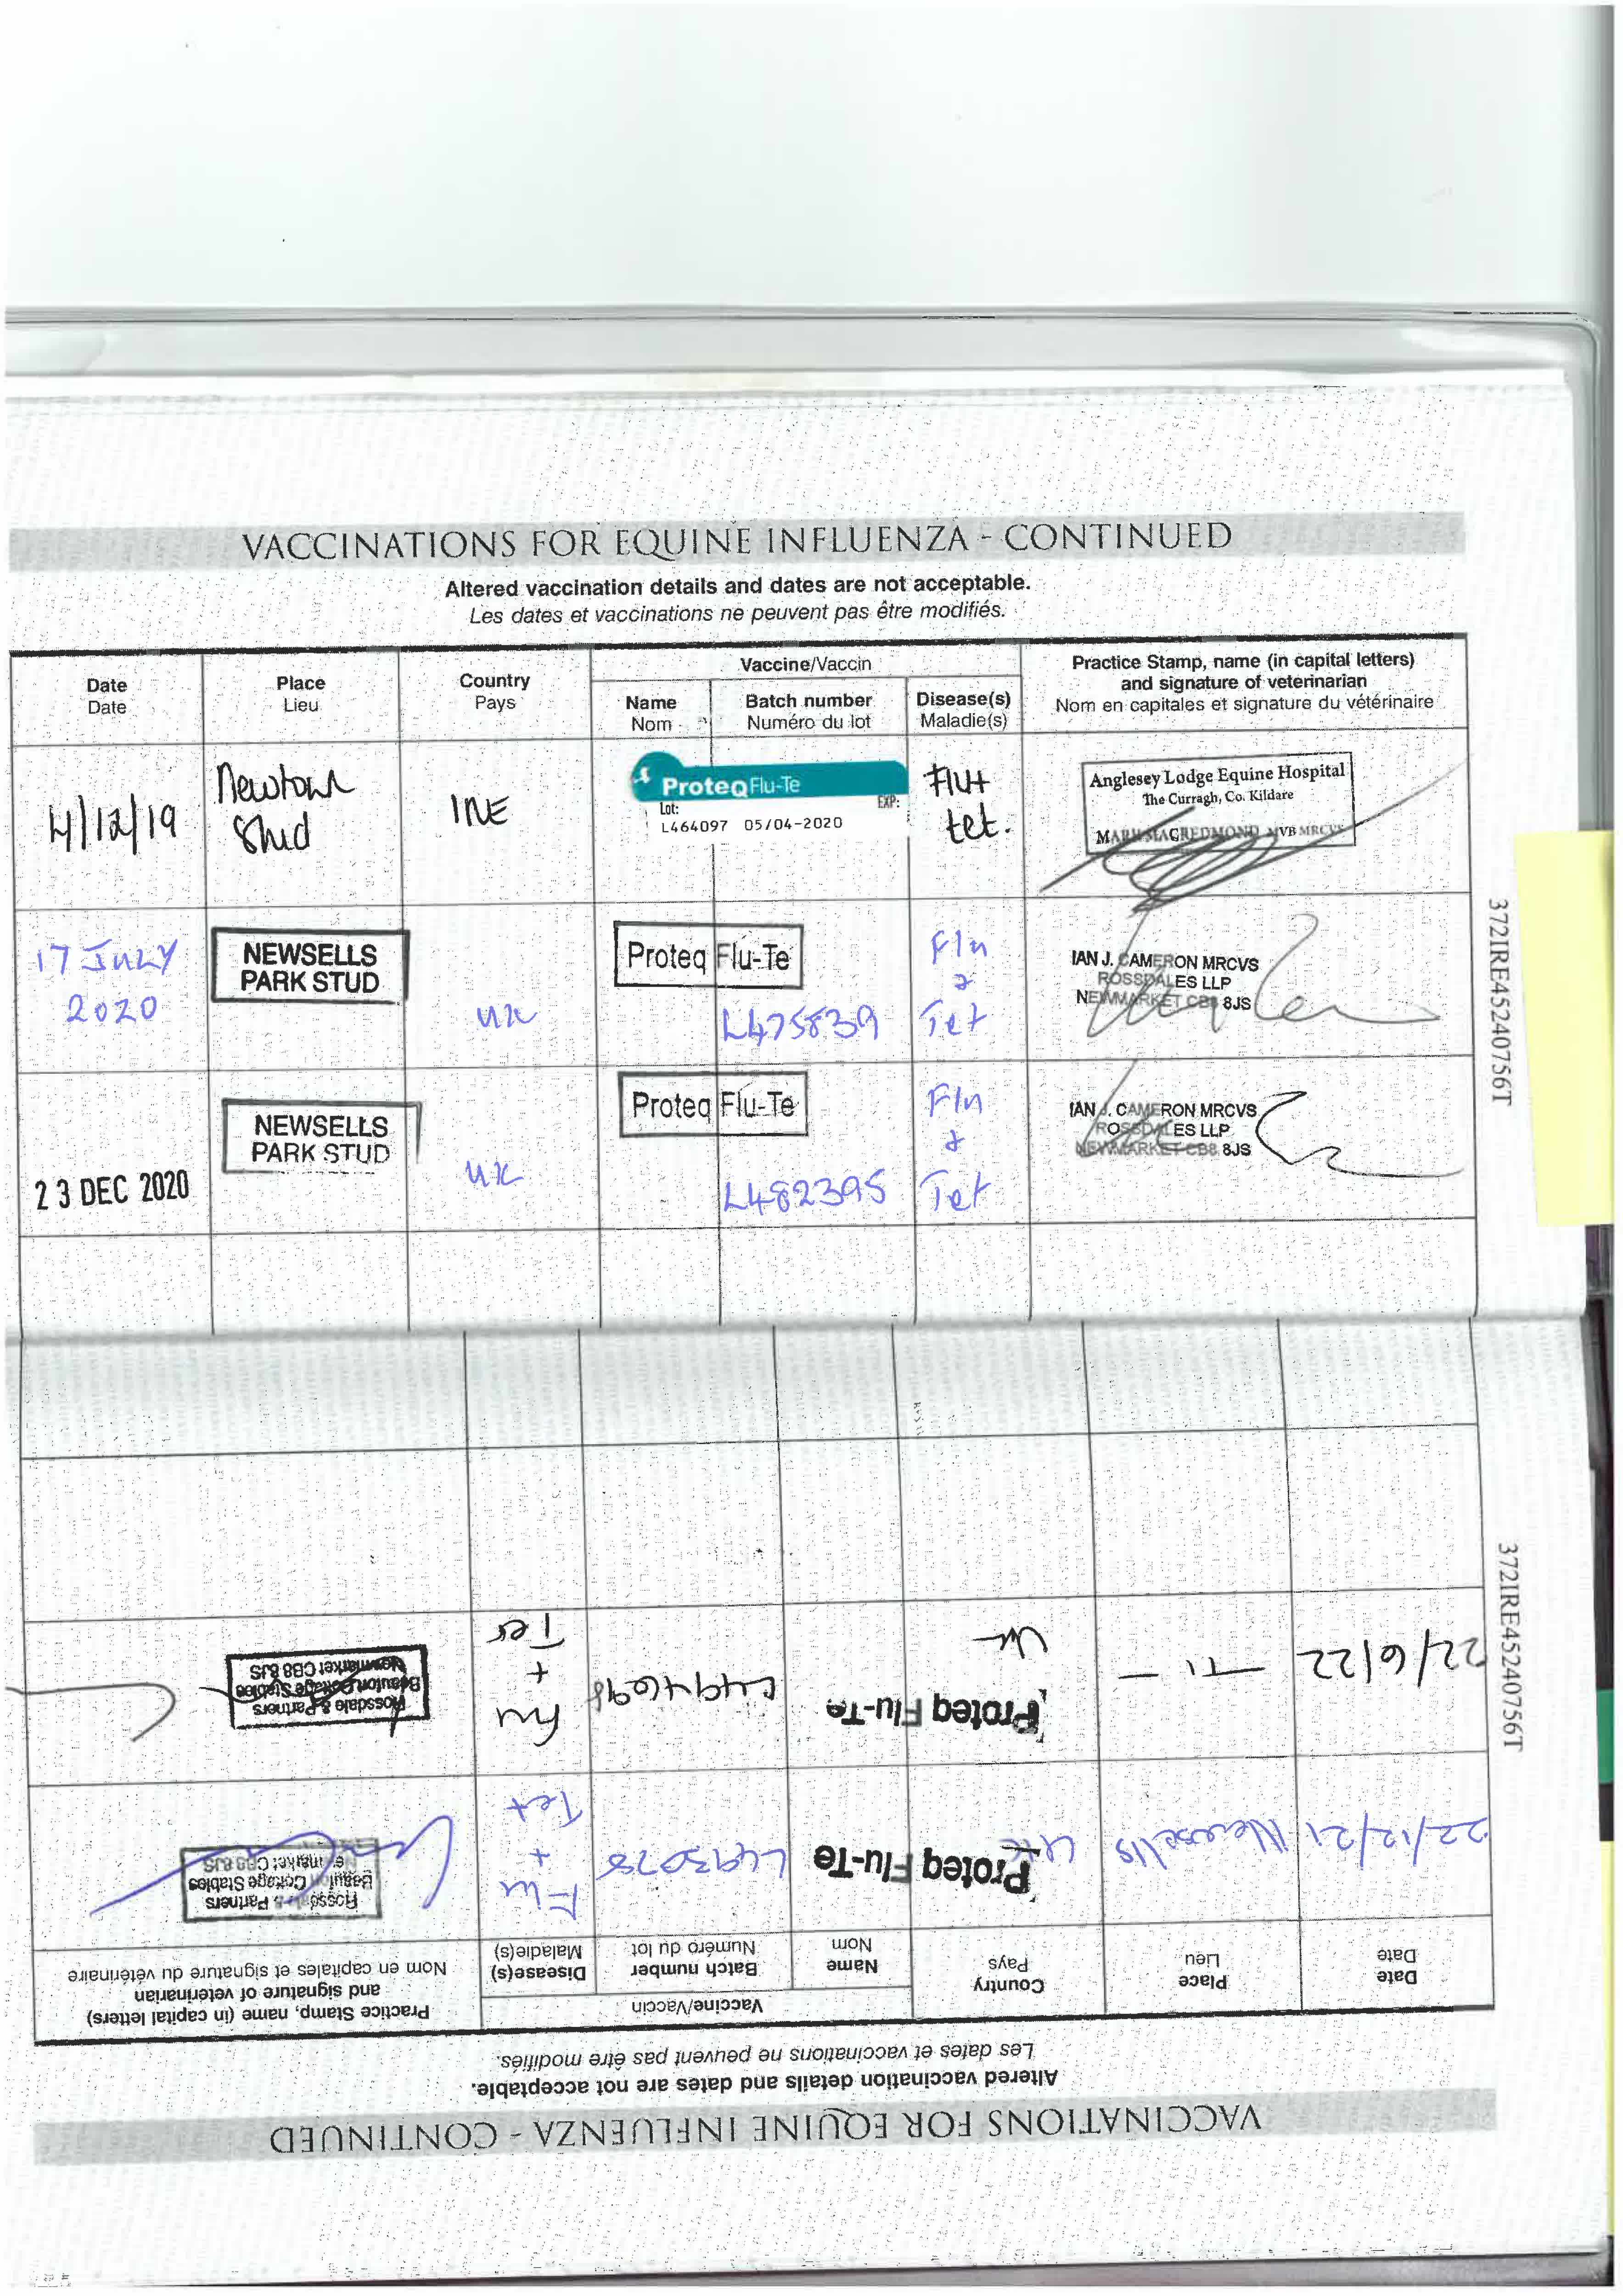 VACCINATIONS FOR EQUINE INFLUENZA - CONTINUED
Altered vaccination details and dates are not acceptable.
Les dates et vaccinations ne peuvent pas être modifiés.
Date
Date
Place
Lieu
Country
Pays
Vaccine/Vaccin
Name
Nom
Batch number
Numéro du lot
Disease(s)
Maladie(s)
Practice Stamp, name (in capital letters)
and signature of veterinarian
Nom en capitales et signature du vétérinaire
4/12/19
Newtown
Stud
IRE
ProteqFlu-Te
Lot:
EXP:
L464097 05/04-2020
Flu+
tet.
Anglesey Lodge Equine Hospital
The Curragh, Co. Kildare
MARK MACREDMOND MVB MRCVS
17 JULY
2020
NEWSELLS
PARK STUD
UK
Proteq Flu-Te
L475839
Flu
&
Tet
IAN J. CAMERON MRCVS
ROSSDALES LLP
NEWMARKET CB8 8JS
23 DEC 2020
NEWSELLS
PARK STUD
UK
Proteq Flu-Te
L482395
Flu
&
Tet
IAN J. CAMERON MRCVS
ROSSDALES LLP
NEWMARKET CB8 8JS
372IRE45240756T
VACCINATIONS FOR EQUINE INFLUENZA - CONTINUED
Altered vaccination details and dates are not acceptable.
Les dates et vaccinations ne peuvent pas être modifiés.
Date
Date
Place
Lieu
Country
Pays
Vaccine/Vaccin
Name
Nom
Batch number
Numéro du lot
Disease(s)
Maladie(s)
Practice Stamp, name (in capital letters)
and signature of veterinarian
Nom en capitales et signature du vétérinaire
22/12/21
Newsells
UK
Proteq Flu-Te
L493078
Flu
+
Tet
Rossdale & Partners
Beaufort Cottage Stables
Newmarket CB8 8JS
22/6/22
UK
Proteq Flu-Te
L494698
Flu
+
Tet
Rossdale & Partners
Beaufort Cottage Stables
Newmarket CB8 8JS
372IRE45240756T